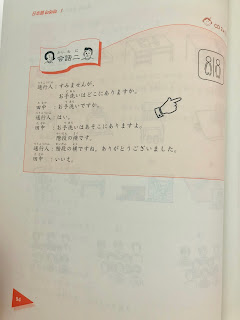 会話二
通行人：すみませんが、
お手洗いはどこにありますか。
田中：お手洗いですか。
通行人：はい。
田中：お手洗いはあそこにありますよ。
階段の横です。
通行人：階段の横ですね。ありがとうございました。
田中：いいえ。